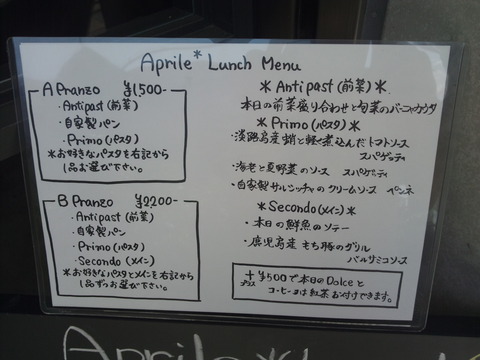 Aprile* Lunch Menu
A Pranzo ¥1,500-
・Antipast (前菜)
・自家製パン
・Primo (パスタ)
＊お好きなパスタを右記から
1品お選び下さい。
B Pranzo ¥2200-
・Antipast (前菜)
・自家製パン
・Primo (パスタ)
・Secondo (メイン)
＊お好きなパスタとメインを右記から
1品ずつお選び下さい。
＊Antipast (前菜)＊
本日の前菜盛り合わせと旬菜のバーニャカウダ
＊Primo (パスタ)＊
・淡路島産蛸と軽く煮込んだトマトソース
スパゲッティ
・海老と夏野菜のソース スパゲッティ
・自家製サルシッチャのクリームソース ペンネ
＊Secondo (メイン)＊
・本日の鮮魚のソテー
・鹿児島産もち豚のグリル
バルサミコソース
＋プラス ¥500で本日のDolceと
コーヒー又は紅茶お付けできます。
Aprile *